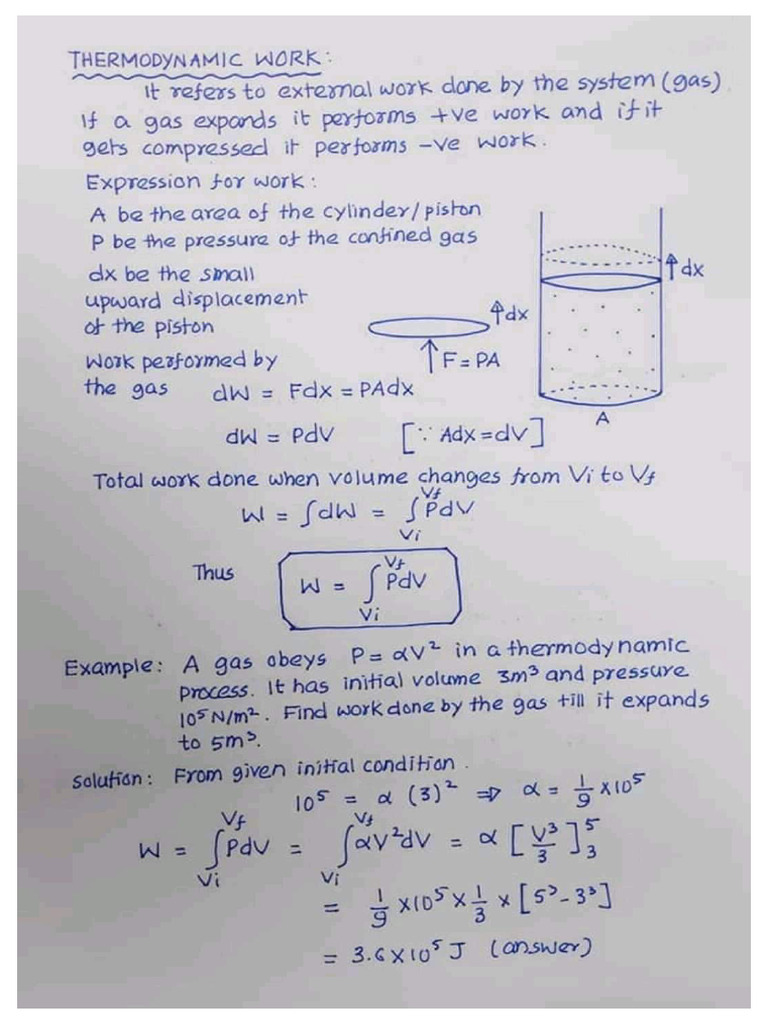 THERMODYNAMIC WORK:
It refers to external work done by the system (gas)
If a gas expands it performs +ve work and if it
gets compressed it performs -ve work.
Expression for work:
A be the area of the cylinder/piston
P be the pressure of the confined gas
dx be the small
upward displacement
of the piston
dx
dx
F = PA
A
Work performed by
the gas dW = Fdx = PAdx
dW = PdV [∵ Adx = dV]
Total work done when volume changes from Vi to Vf
W = ∫dW = ∫_{Vi}^{Vf} PdV
Thus W = ∫_{Vi}^{Vf} PdV
Example: A gas obeys P = αV² in a thermodynamic
process. It has initial volume 3m³ and pressure
10⁵ N/m². Find work done by the gas till it expands
to 5m³.
Solution: From given initial condition.
10⁵ = α (3)² ⇒ α = 1/9 × 10⁵
W = ∫_{Vi}^{Vf} PdV = ∫_{Vi}^{Vf} αV²dV = α [V³/3]_3^5
= 1/9 × 10⁵ × 1/3 × [5³ - 3³]
= 3.6 × 10⁵ J (answer)